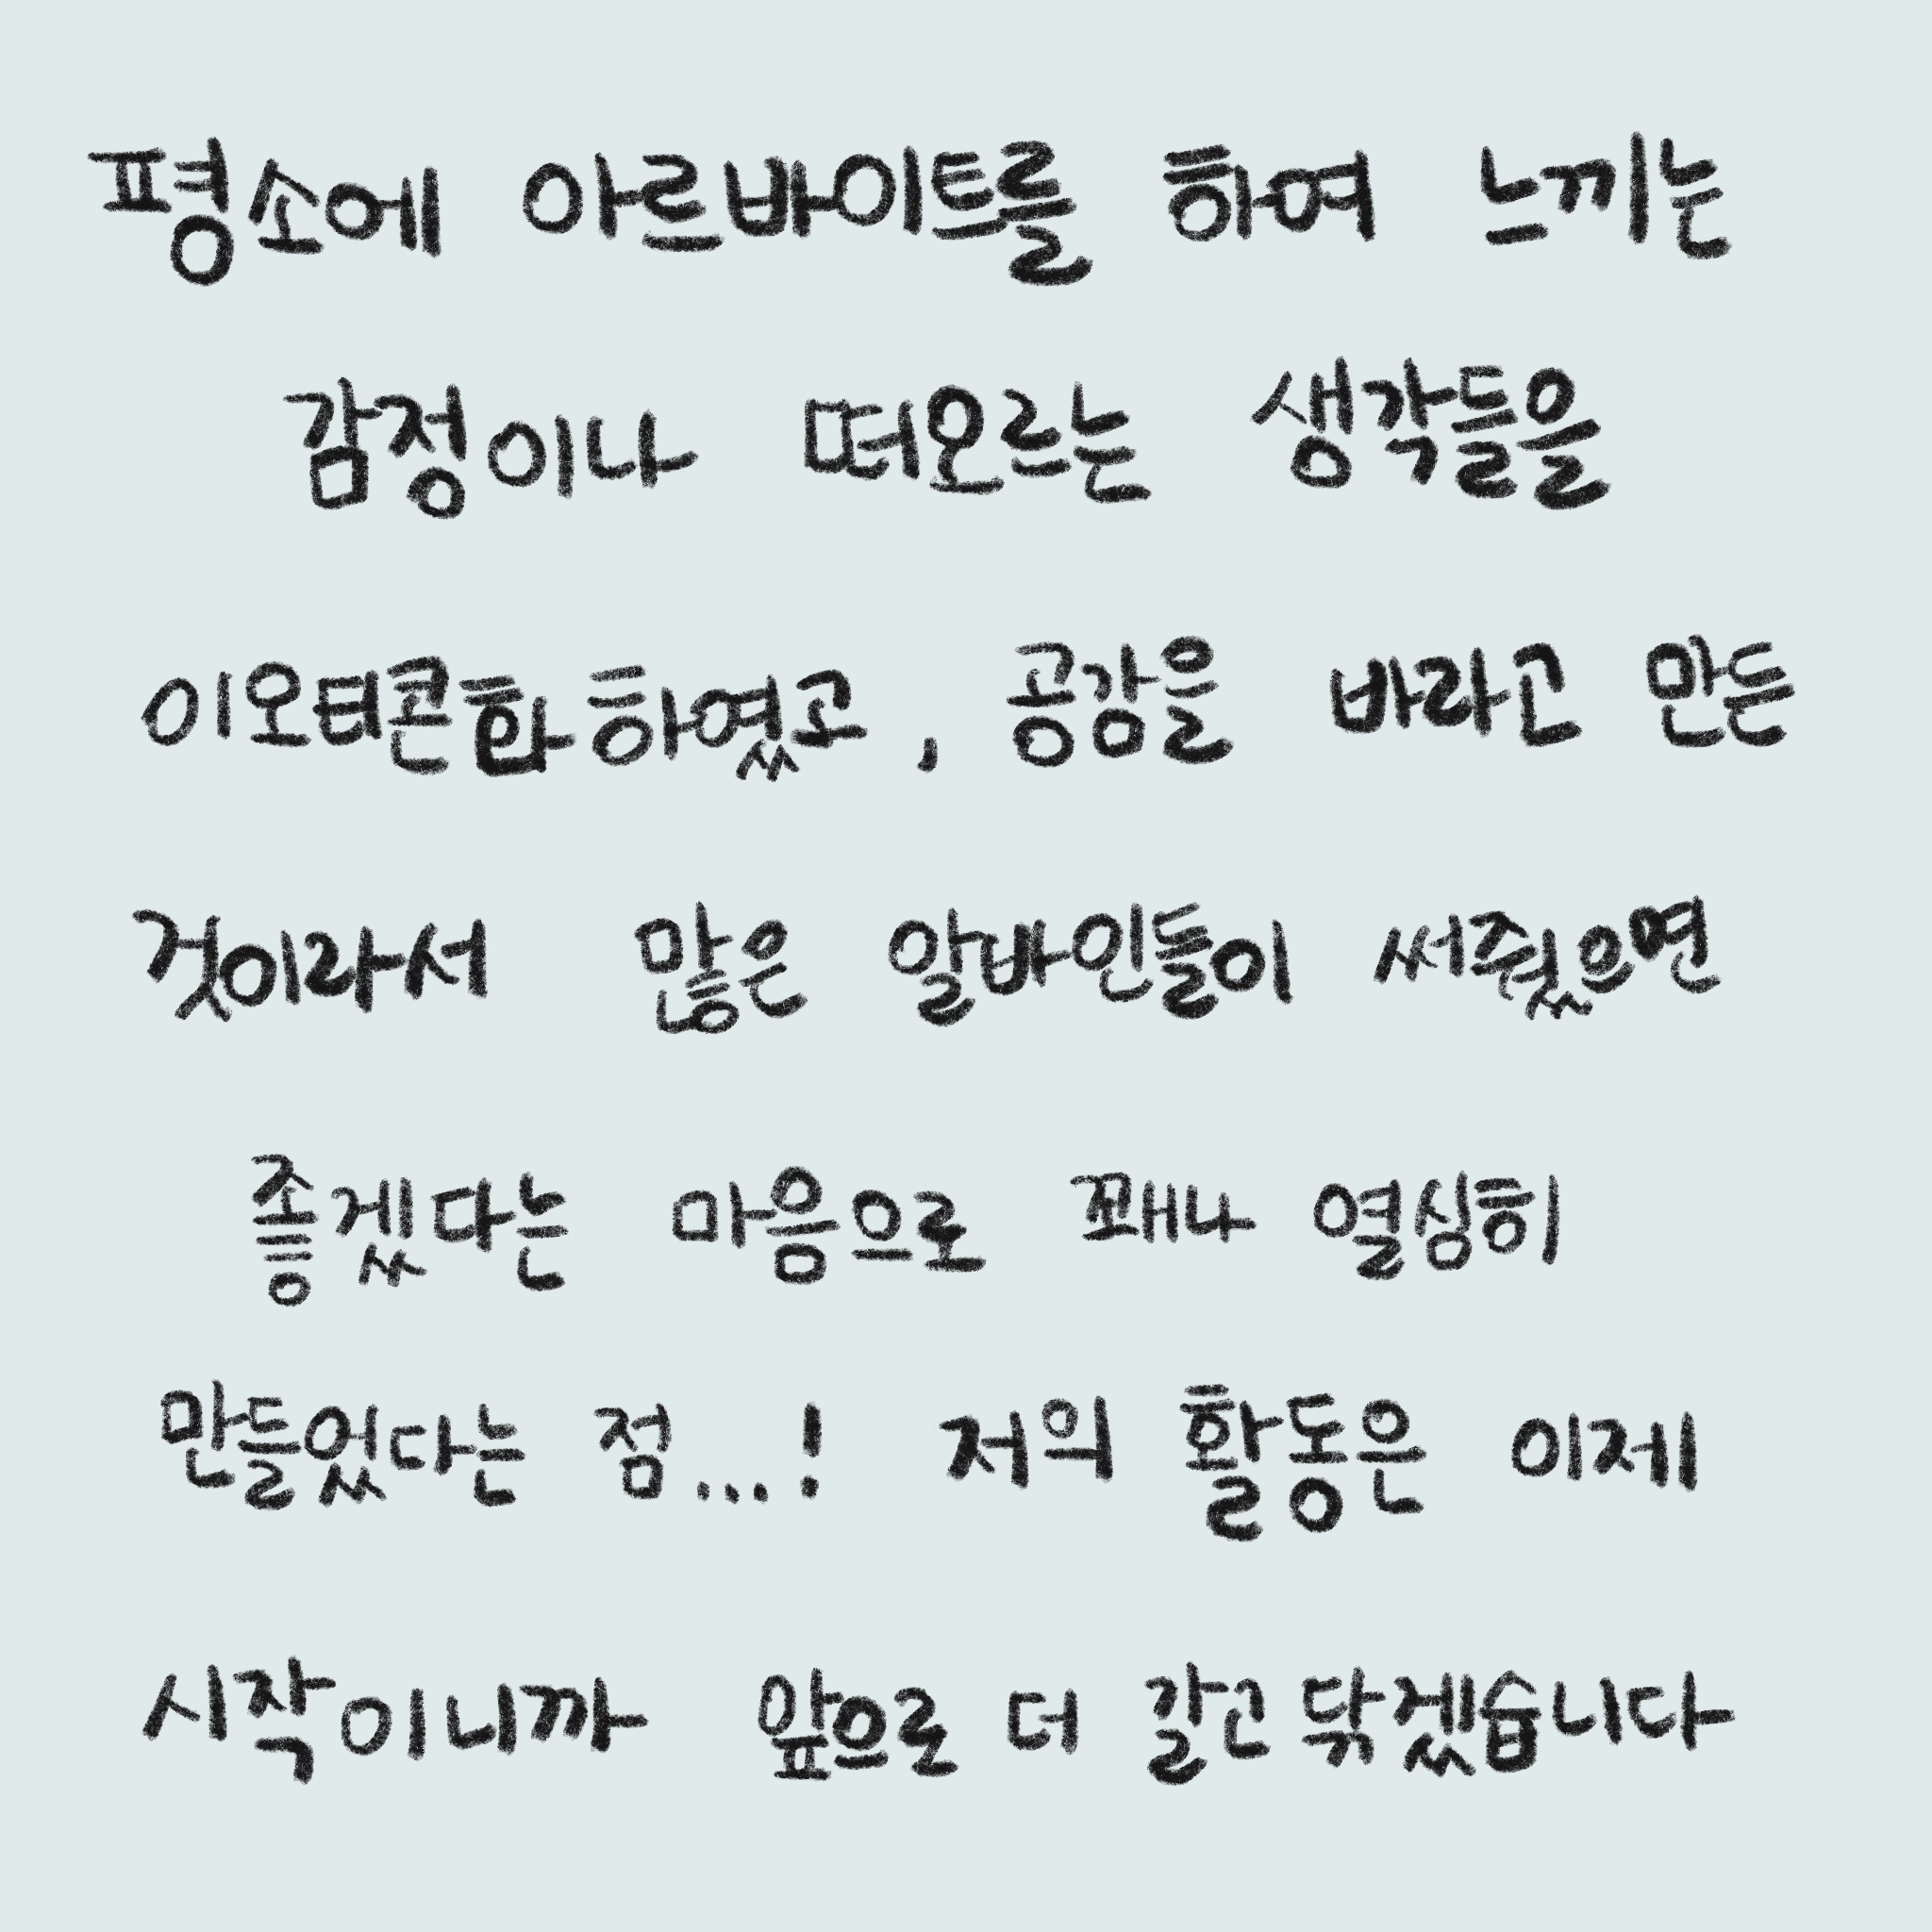 평소에 아르바이트를 하여 느끼는
감정이나 떠오르는 생각들을
이오티콘화 하였고, 공감을 바라고 만든
것이라서 많은 알바인들이 써줬으면
좋겠다는 마음으로 꽤나 열심히
만들었다는 점...! 저의 활동은 이제
시작이니까 앞으로 더 갈고 닦겠습니다